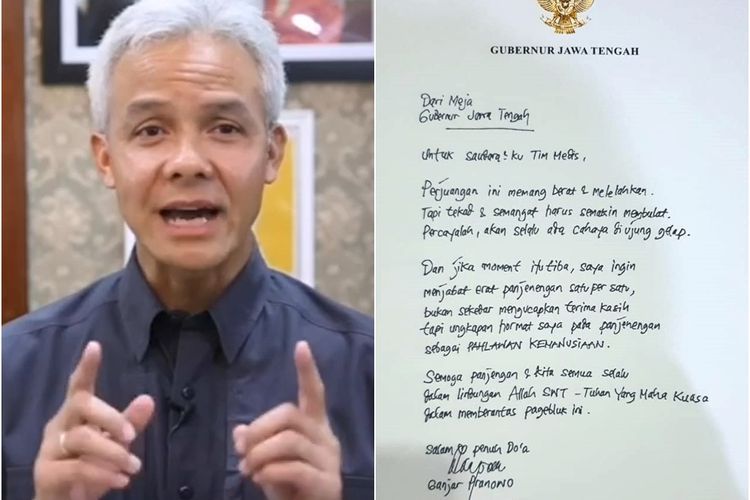 GUBERNUR JAWA TENGAH
Dari Meja
Gubernur Jawa Tengah
Untuk saudara²ku Tim Medis,
Perjuangan ini memang berat & melelahkan.
Tapi tekad & semangat harus semakin membulat.
Percayalah, akan selalu ada cahaya di ujung gelap.
Dan jika moment itu tiba, saya ingin
menjabat erat panjenengan satu per satu,
bukan sekedar mengucapkan terima kasih
tapi ungkapan hormat saya pada panjenengan
sebagai PAHLAWAN KEMANUSIAAN.
Semoga panjengan & kita semua selalu
dalam lindungan Allah SWT - Tuhan Yang Maha Kuasa
dalam memberantas pagebluk ini.
Salamku penuh Do'a
Ganjar Pranowo